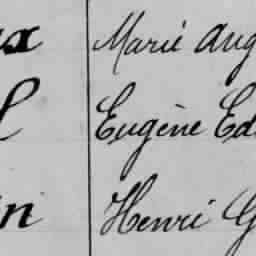 ux Marie Aug
l Eugène Ed
in Henri G